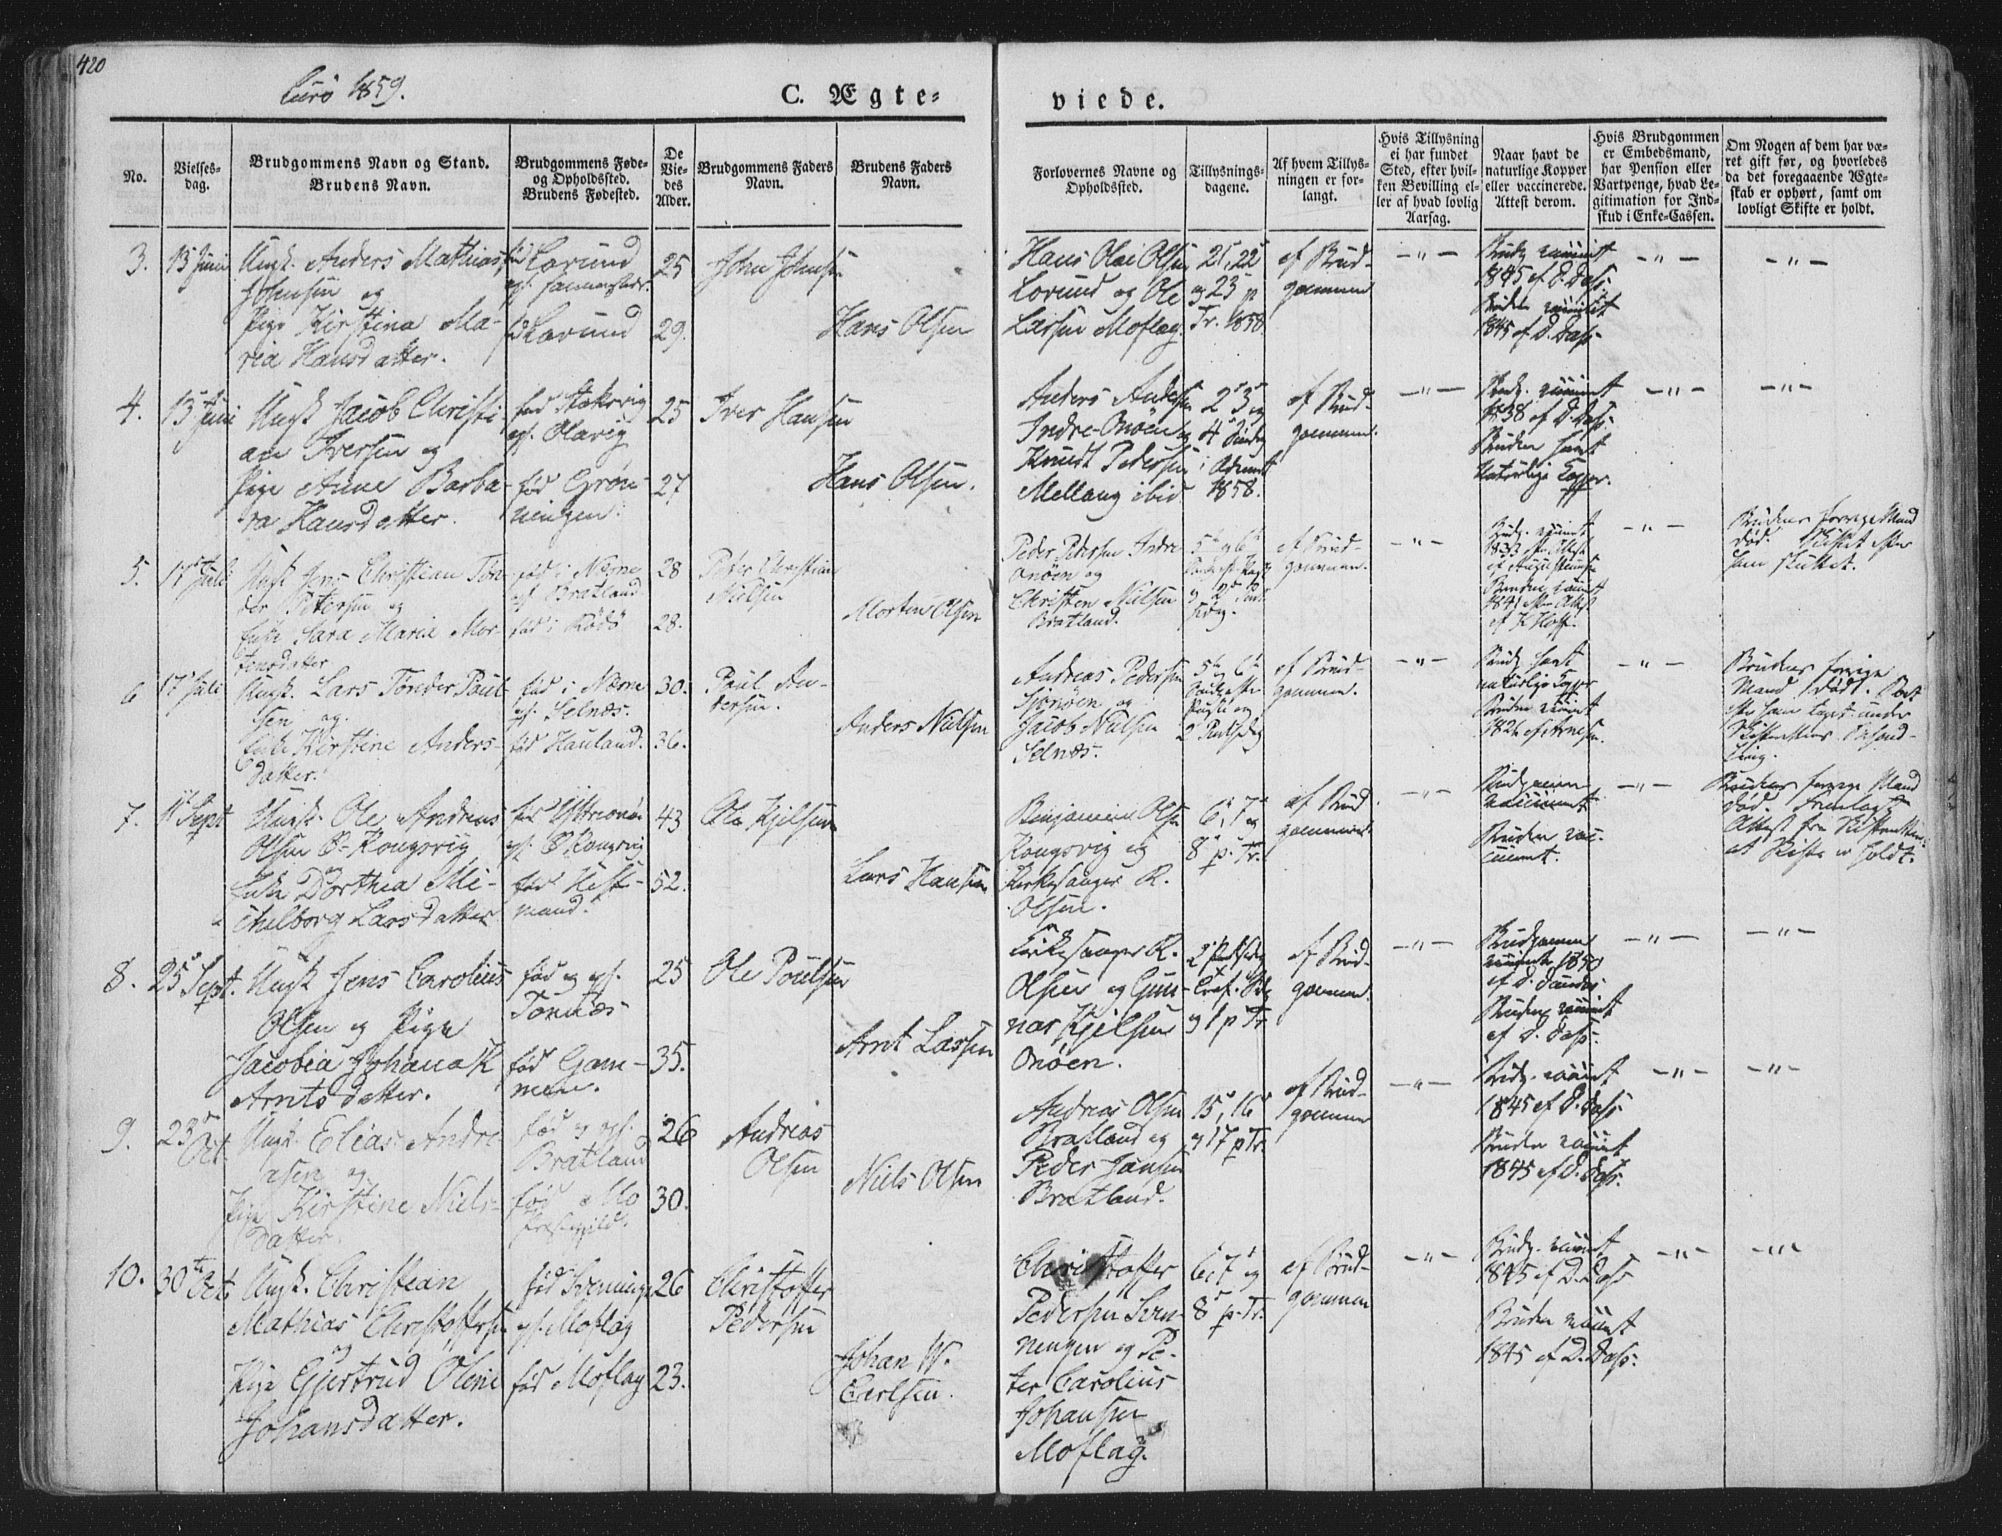 420
Lurö 1859.
C. Ægte-
viede.
No.
Vielses-
dag.
Brudgommens Navn og Stand.
Brudens Navn.
Brudgommens Føde-
og Opholdssted.
Brudens Fødested.
De
Vie-
des
Alder.
Brudgommens Faders
Navn.
Brudens Faders
Navn.
Forlovernes Navne og
Opholdssted.
Tillysnings-
dagene.
Af hvem Tillys-
ningen er for-
langt.
Hvis Tillysning
ei har fundet
Sted, efter hvil-
ken Bevilling el-
ler af hvad lovlig
Aarsag.
Naar havt de
naturlige Kopper
eller vaccinerede.
Attest derom.
Hvis Brudgommen
er Embedsmand,
har Pension eller
Vartpenge, hvad Le-
gitimation for Ind-
skud i Enke-Cassen.
Om Nogen af dem har væ-
ret gift før, og hvorledes
da det foregaaende Ægte-
skab er ophørt, samt om
lovligt Skifte er holdt.
3.
13 Juni
Ungk. Anders Mathias
Johnsen og
Pige Kirstina Ma-
ria Hansdatter.
Lorund
fd Lorund
25
29.
John Johnsen
Hans Olsen
Hans Olai Olsen
Lorund og Ole
Larsen Moflag.
21, 22
og 23 p
Tr. 1858
af Brud-
gommen
Brudg. vaccinert
1845 af D. Dass.
Bruden vaccineret
1845 af D. Dass.
4.
13 Juni
Ungk Jacob Christi-
an Iversen og
Pige Anne Barba-
ra Hansdatter.
fød Stokvig
opf. Olavig
fød Grön-
ningen.
25
27
Iver Hansen
Hans Olsen.
Anders Andersen
Indre-Onöen og
Knudt Pedersen
Mellang ibid
2, 3 og
4 Søndag
i Advent
1858.
af Brud-
gommen.
Brudg. vaccinert
1838 af D. Dass.
Bruden havt
Naturlige Kopper.
5.
17 Juli
Ungk Jens Christian Tön-
der Petersen og
Enke Sara Maria Mor-
tensdatter
fød i Næsne
opf. Bratland
fød i Rödö
28
28.
Peter Christian
Nielsen
Morten Olsen
Peder Pedersen Indre
Onöen og
Christen Nielsen
Bratland.
af Brud-
gommen.
Brudens forrige Mand
död. Skiftet efter
ham sluttet.
6
17 Juli
Ungk. Lars Tönder Paul-
sen og
Enke Kirstine Anders-
datter.
fød i Næsne
opf. Selnæs.
fød Hauland.
30.
36.
Paul An-
dersen.
Anders Nielsen
Andreas Pedersen
Sjonöen og
Jacob Nielsen
Selnæs.
af Brud-
gommen.
Brudg havt
naturlige Kopper
Bruden vaccinert
Brudens forrige
Mand död.
7.
11 Sept
Ungk. Ole Andreas
Olsen Ö-Kongsvig
Enke Dorthea Mi-
chelborg Larsdatter
fød Yttreonö
opf. Ö. Kongsvig
fød Hest-
mand.
43
52.
Ole Kjelsen
Lars Hansen
Benjamin Olsen
Kongsvig og
Kirkesanger R.
Olsen.
6, 7 og
8 p. Tr.
af Brud-
gommen.
Brudgommen
vaccinert.
Bruden vac-
cinert.
Brudens forrige Mand
död. Fremlagt
Attest fra Skifteretten
at Skifte er holdt.
8.
25 Sept.
Ungk Jens Carolius
Olsen og Pige
Jacobia Johanna K
Arntsdatter.
fød og opf.
Tonnes
fød Gam-
men.
25
35.
Ole Poulsen
Arnt Larsen
Kirkesanger R.
Olsen og Gun-
nar Kjelsen
Onöen.
og 1 p Tr.
af Brud-
gommen.
Brudgommen
vaccinert 1850
Bruden vaccinert
af D. Dass.
9.
23 Oct.
Ungk. Elias Andre-
asen og
Pige Kirstine Niels-
datter.
fød og opf.
Bratland
fød Mo
Prestegjeld.
26
30.
Andreas
Olsen
Niels Olsen
Andreas Olsen
Bratland og
Peder Jansen
Bratland.
15, 16
og 17 p Tr.
af Brud-
gommen
Brudg. vaccinert
1845 af D. Dass.
Bruden vaccinert
1845 af D. Dass.
10.
30 Oct.
Ungk. Christian
Mathias Christoffersen
og
Pige Gjertrud Oline
Johansdatter.
fød Svenninge
opf. Moflag
fød Moflag
26
23.
Christoffer
Pedersen
Johan W.
Carlsen.
Christoffer
Pedersen Sven-
ningen og Pe-
ter Carolius
Johansen
Moflag.
6, 7 og
8 p. Tr.
af Brud-
gommen
Brudg. vaccinert
1845 af D. Dass
Bruden vaccinert
1845 af D. Dass.